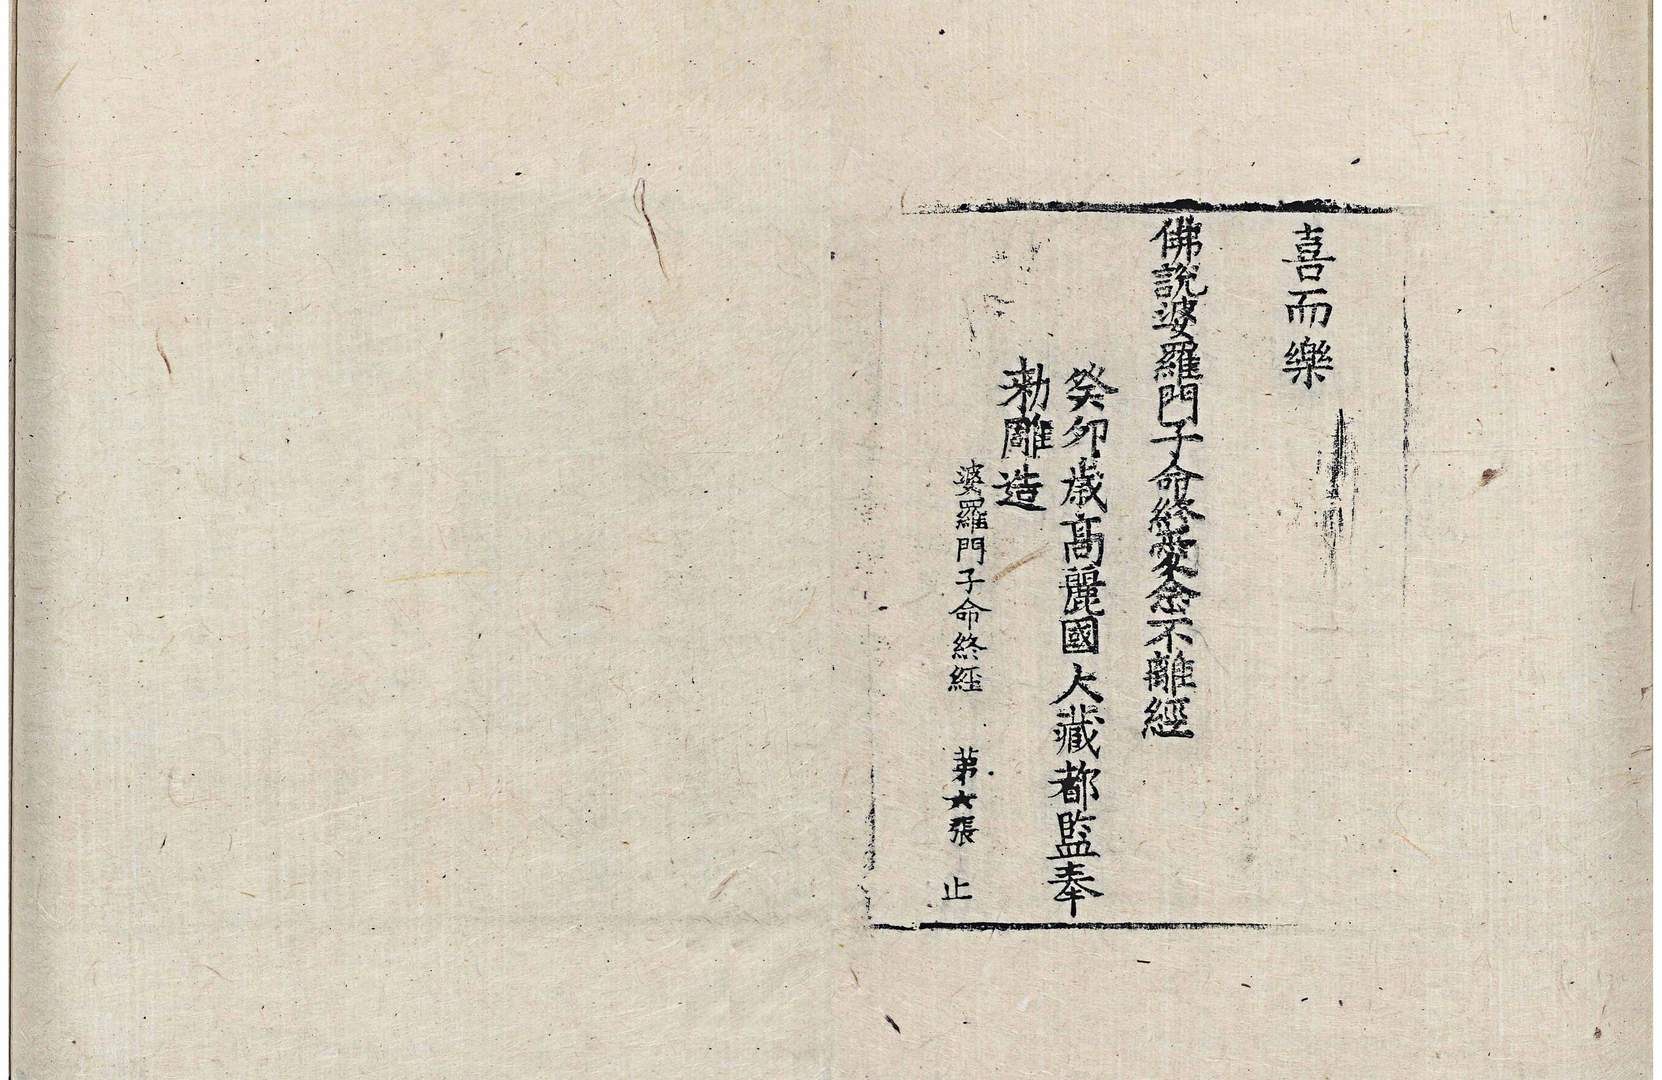 喜而樂
佛說婆羅門子命終愛念不離經
癸卯歲高麗國大藏都監奉
勅雕造
婆羅門子命終經 第六張 止